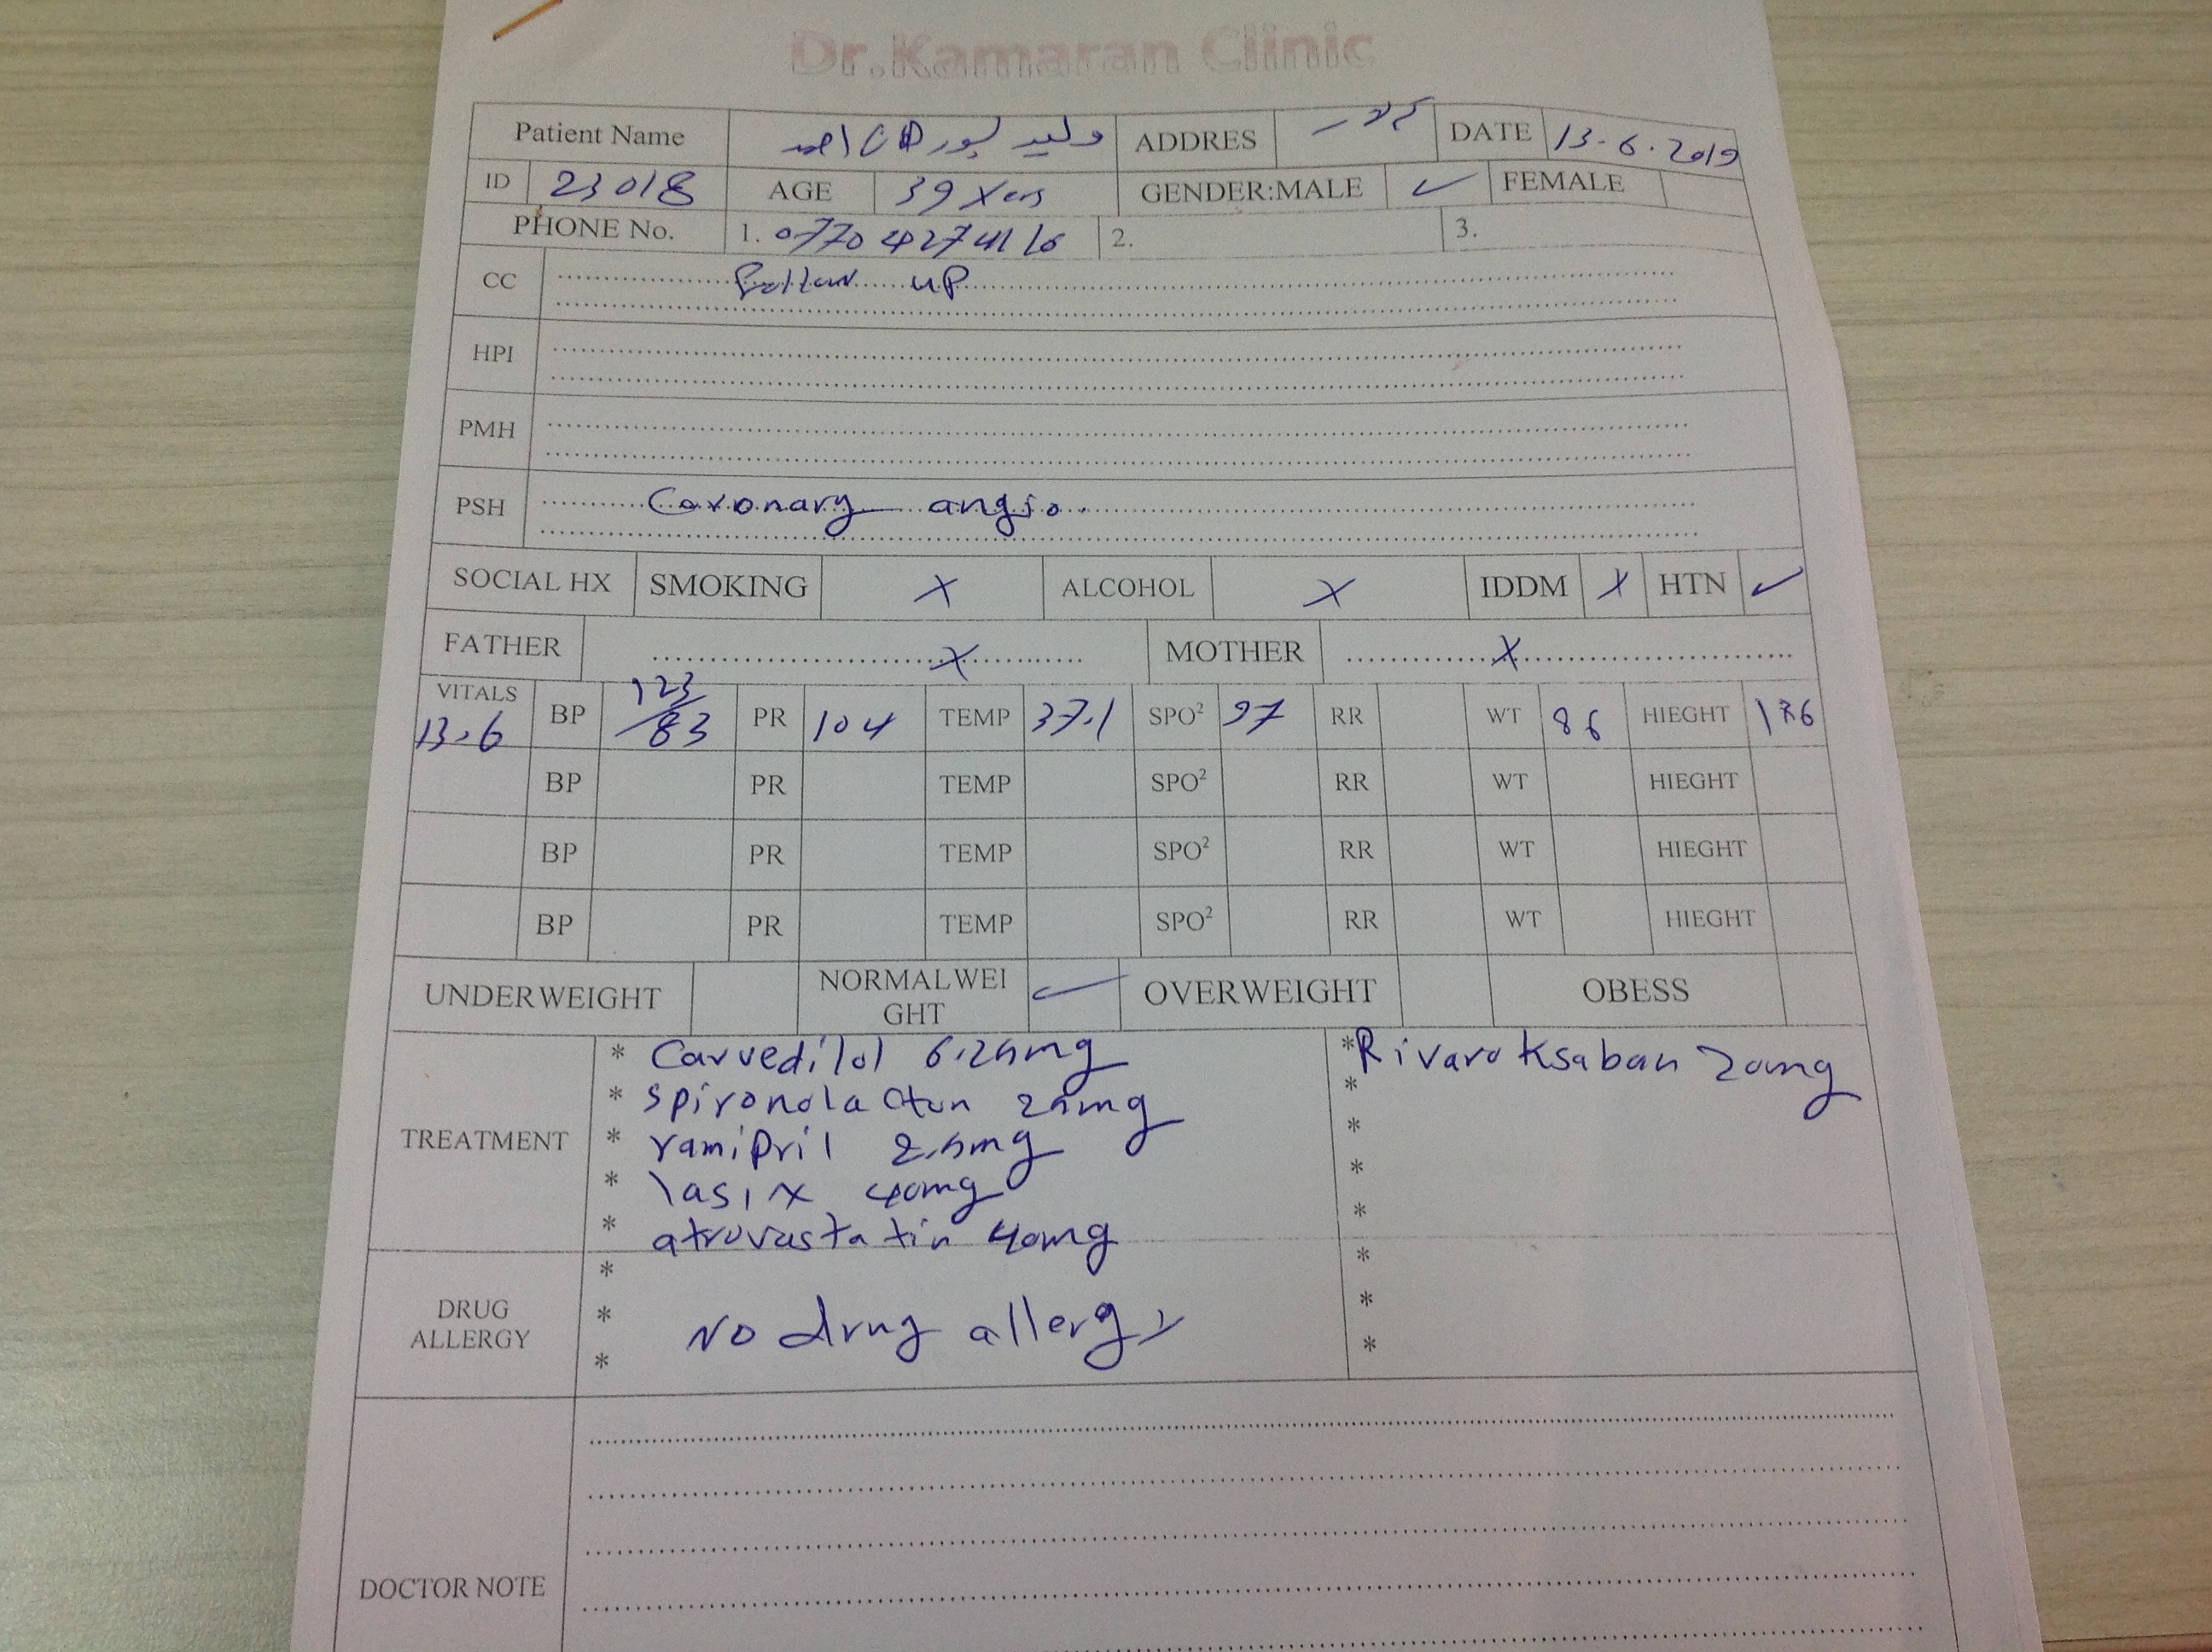 Dr.Kamaran Clinic
Patient Name وليد ADDRES كلار DATE 13-6-2019
ID 23018 AGE 39 Yers GENDER:MALE ✓ FEMALE
PHONE No. 1. 2. 3.
CC Follow up
HPI
PMH
PSH Coronary angio.
SOCIAL HX SMOKING X ALCOHOL X IDDM X HTN ✓
FATHER X MOTHER X
VITALS 13.6 BP 123/83 PR 104 TEMP 37.1 SPO² 97 RR WT 86 HIEGHT
BP PR TEMP SPO² RR WT HIEGHT
BP PR TEMP SPO² RR WT HIEGHT
BP PR TEMP SPO² RR WT HIEGHT
UNDERWEIGHT NORMALWEI GHT ✓ OVERWEIGHT OBESS
TREATMENT
* Carvedilol 6.25mg
* spironolacton 25mg
* ramipril 2.5mg
* lasix 40mg
* atrovastatin 40mg
* Rivaroksaban 20mg
*
*
*
*
DRUG ALLERGY
*
* No drug allergy
*
*
*
*
DOCTOR NOTE